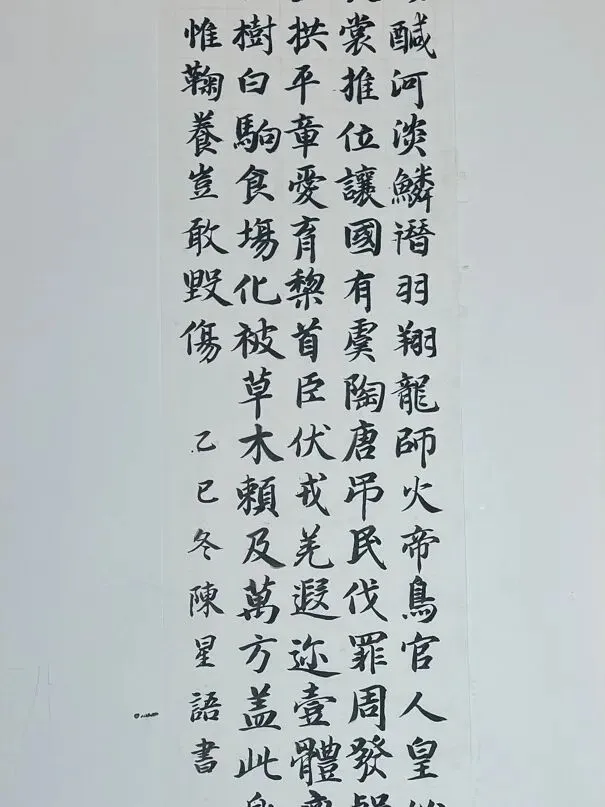 醎河淡鱗潛羽翔龍師火帝鳥官人皇
裳推位讓國有虞陶唐吊民伐罪周發
拱平章愛育黎首臣伏戎羌遐迩壹體
樹白駒食塲化被草木賴及萬方盖此
惟鞠養豈敢毀傷
乙巳冬陳星語書